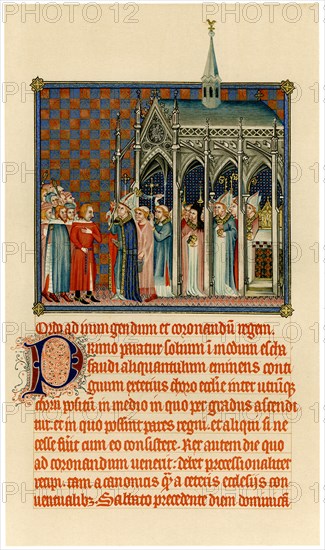 Q̃uo ad inungendum et coronandũ regem.
Primo paratur solium ĩ modum escha
faudi aliquantulum eminens conti
guum exterius choro ecclie inter utrũque
chorũ positũ in medio in quo per gradus ascendi
tur. et in quo possint pares regni. et aliqui si ne
cesse fũit cum eo consistere. Rex autem die quo
ad coronandum venerit. debet processionaliter
recipi. tam a canonicis q̃ a ceteris ecclesijs con
ventualibz. Sabbato precedente diem dominicã.
PHOTO12